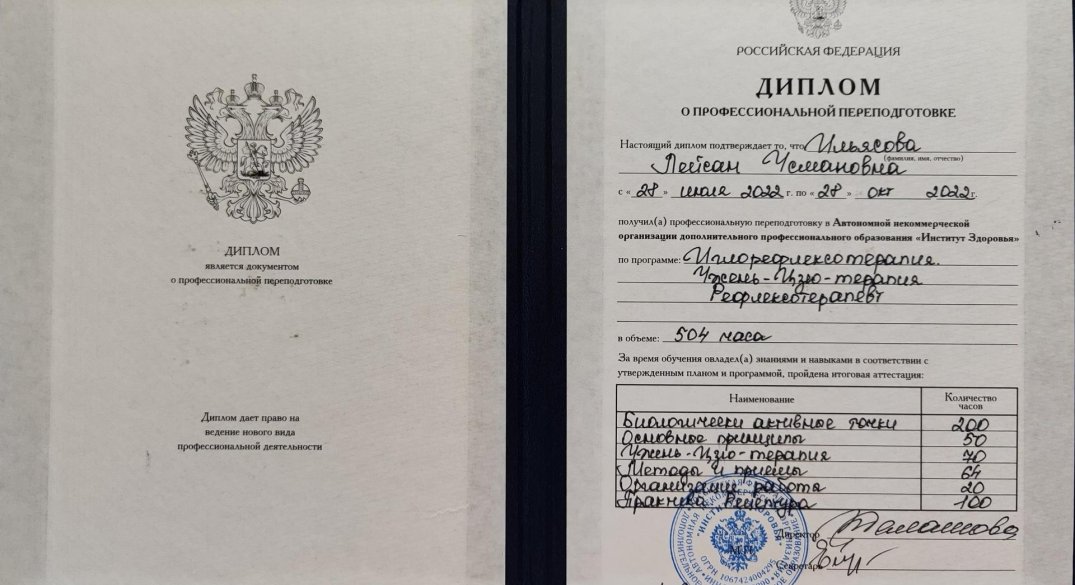 ДИПЛОМ
является документом
о профессиональной переподготовке
Диплом дает право на
ведение нового вида
профессиональной деятельности
РОССИЙСКАЯ ФЕДЕРАЦИЯ
ДИПЛОМ
О ПРОФЕССИОНАЛЬНОЙ ПЕРЕПОДГОТОВКЕ
Настоящий диплом подтверждает то, что Ильясова
(фамилия, имя, отчество)
Лейсан Усмановна
с « 28 » июля 2022 г. по « 28 » окт 2022 г.
получил(а) профессиональную переподготовку в Автономной некоммерческой
организации дополнительного профессионального образования «Институт Здоровья»
по программе: Иглорефлексотерапия.
Чжень-Цзю-терапия
Рефлексотерапевт
в объеме: 504 часа
За время обучения овладел(а) знаниями и навыками в соответствии с
утвержденным планом и программой, пройдена итоговая аттестация:
Наименование Количество часов
Биологически активные точки 200
Основные принципы 50
Чжень-Цзю-терапия 70
Методы и приемы 64
Организация работы 20
Практика Рецептура 100
Директор
М.П.
Секретарь
«ИНСТИТУТ ЗДОРОВЬЯ»